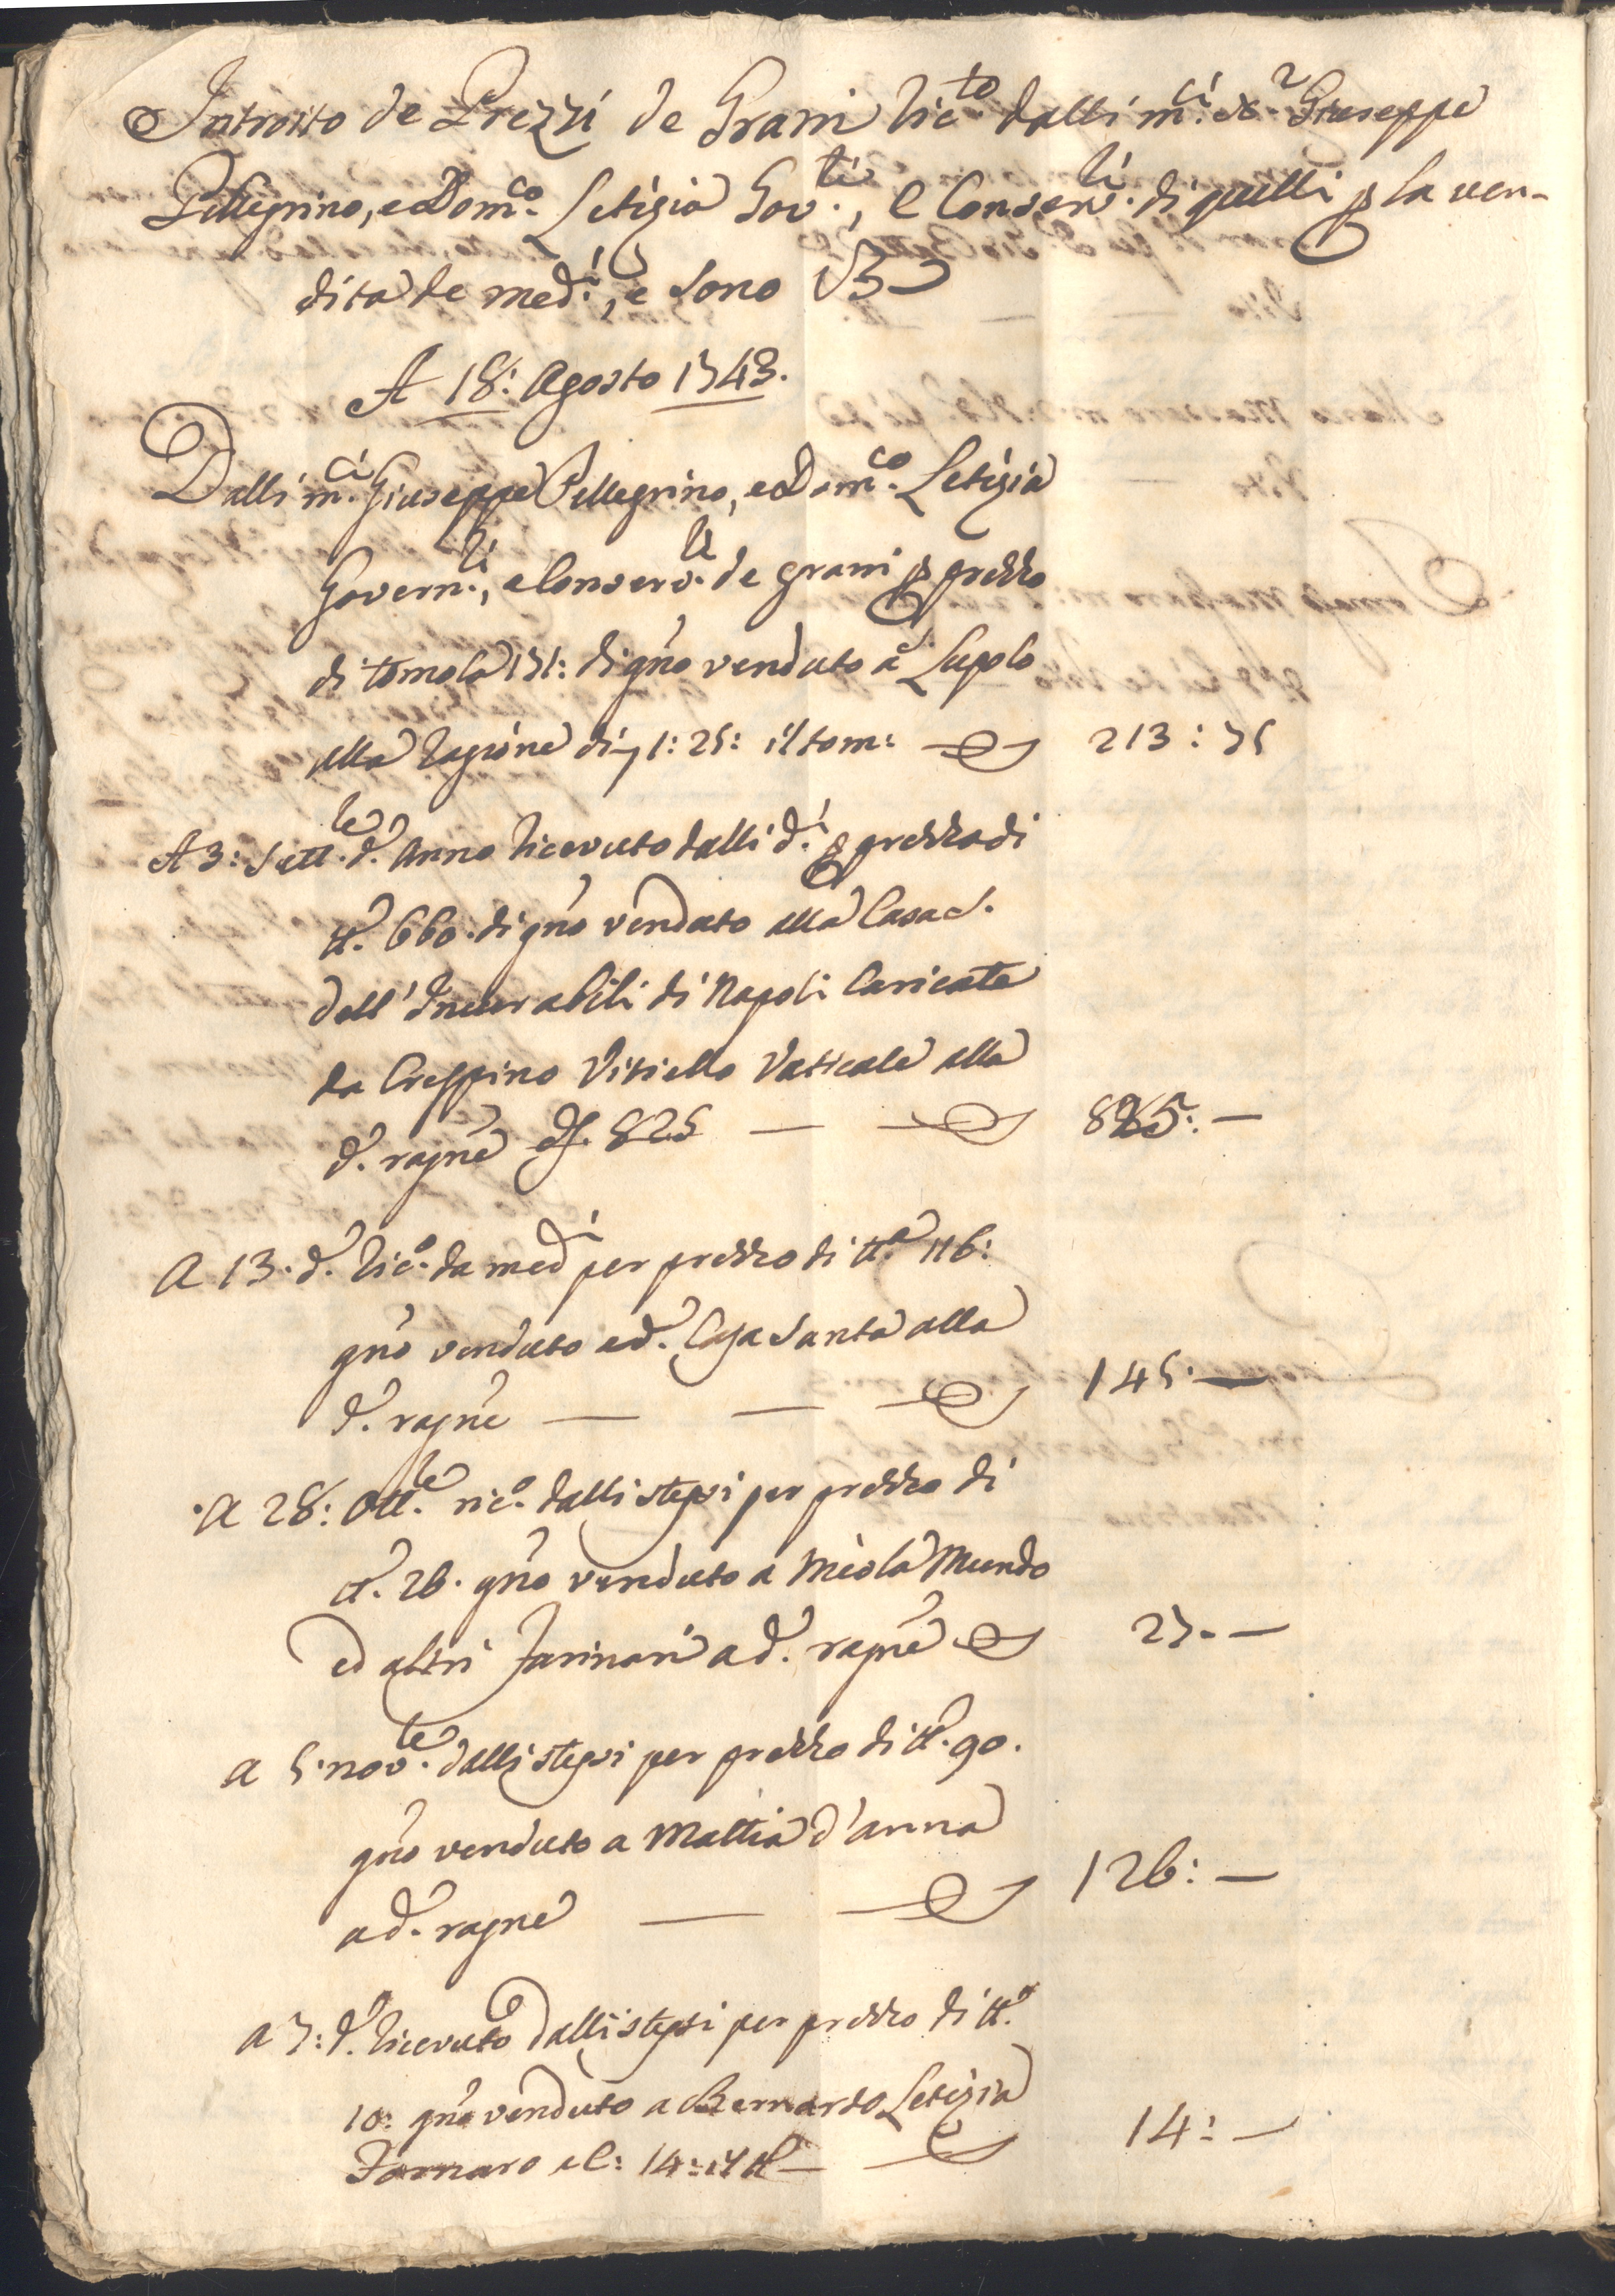 Introito de Prezzi de Grani ric.to dalli m.ci d.r Giuseppe
Pellegrino, e Dom.co Letizia Gov.ri, e Conserv.ri di quelli p la ven-
dita de med.i, e sono
A 18: Agosto 1743.
Dalli m.ci Giuseppe Pellegrino, e Dom.co Letizia
Govern.ri, e Conserv.ri de grani p prezzo
di tomola 171: di gno venduto a Lupolo
alla ragione di 1: 25: il tom: 213: 75
A 3: Sett.re d. Anno ricevuto dalli d.i p prezzo di
tt.a 660. di gno venduto alla Casa S.
dell' Incurabili di Napoli caricate
da Crespino Vitiello Vaticale alla
d. ragne 825 — 825: —
A 13. d. ric.o da med.i per prezzo di tt.a 116:
gno venduto a d. Casa Santa alla
d. ragne — — 145. —
A 28: Ott.re ric.o dalli stessi per prezzo di
tt.a 26. gno venduto a Meola Mundo
ed altri farinari a d. ragne 27. —
a 5. nov.re dalli stessi per prezzo di tt.a 90.
gno venduto a Mattia d'anna
a d. ragne — 126: —
a 7: d.o ricevuto dalli stessi per prezzo di tt.a
10: gno venduto a Bernardo Letizia
Fornaro 14: — 14: —